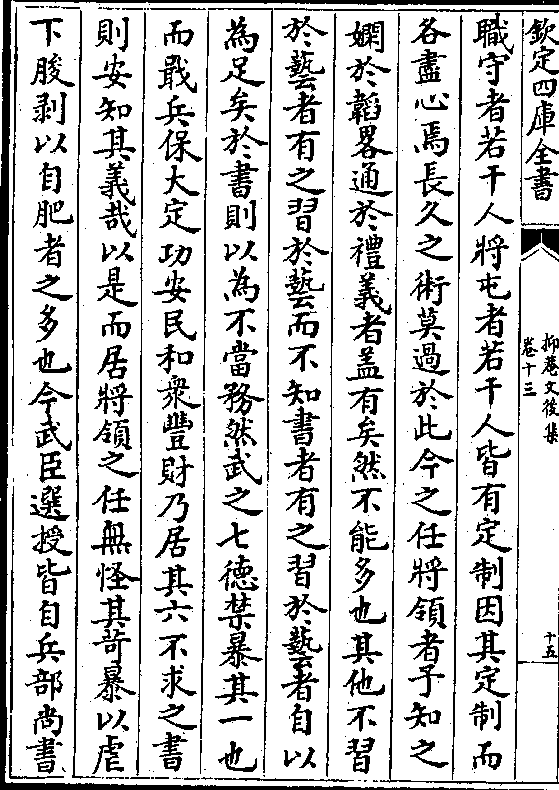 欽定四庫全書
抑菴文後集
卷十三
十五
職守者若干人將屯者若干人皆有定制因其定制而
各盡心焉長久之術莫過於此今之任將領者予知之
嫻於韜畧通於禮義者盖有矣然不能多也其他不習
於藝者有之習於藝而不知書者有之習於藝者自以
為足矣於書則以為不當務然武之七德禁暴其一也
而戢兵保大定功安民和衆豐財乃居其六不求之書
則安知其義哉以是而居將領之任無怪其苛暴以虐
下朘剥以自肥者之多也今武臣選授皆自兵部尚書